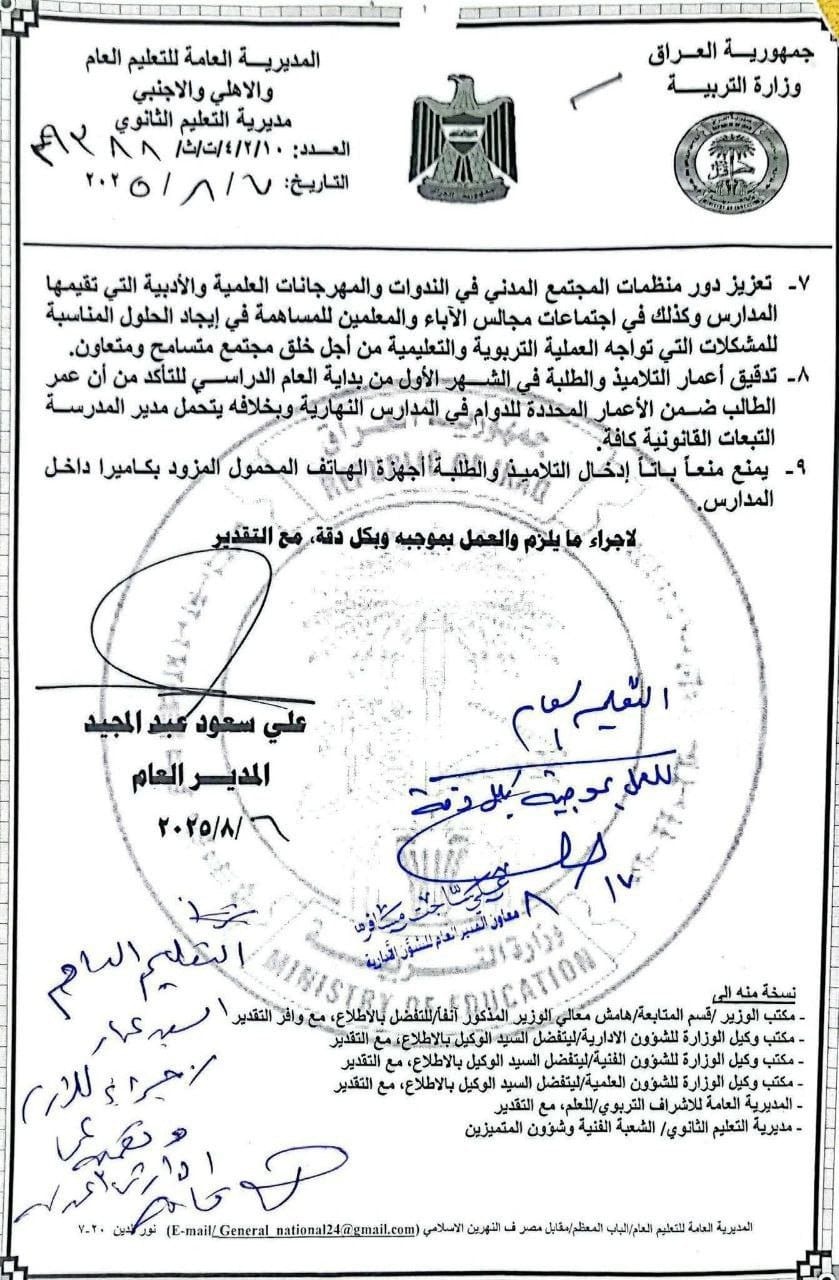 جمهورية العراق
وزارة التربية
المديرية العامة للتعليم العام
والاهلي والاجنبي
مديرية التعليم الثانوي
العدد: ٤/٢/١٠/ت/ث/
التاريخ: ٢٠٢٥/٨/
٧- تعزيز دور منظمات المجتمع المدني في الندوات والمهرجانات العلمية والأدبية التي تقيمها
المدارس وكذلك في اجتماعات مجالس الآباء والمعلمين للمساهمة في إيجاد الحلول المناسبة
للمشكلات التي تواجه العملية التربوية والتعليمية من أجل خلق مجتمع متسامح ومتعاون.
٨- تدقيق أعمار التلاميذ والطلبة في الشهر الأول من بداية العام الدراسي للتأكد من أن عمر
الطالب ضمن الأعمار المحددة للدوام في المدارس النهارية وبخلافه يتحمل مدير المدرسة
التبعات القانونية كافة.
٩- يمنع منعاً باتاً إدخال التلاميذ والطلبة أجهزة الهاتف المحمول المزود بكاميرا داخل
المدارس.
لاجراء ما يلزم والعمل بموجبه وبكل دقة، مع التقدير
جمهورية العراق
REPUBLIC OF IRAQ
علي سعود عبد المجيد
المدير العام
٢٠٢٥/٨/٦
التعليم العام
للعمل بموجبه بكل دقة
٨
معاون المدير العام للشؤون الادارية
وزارة التربية
MINISTRY OF EDUCATION
التعليم العام
السيد عمار
نسخة منه الى
- مكتب الوزير /قسم المتابعة/هامش معالي الوزير المذكور آنفاً/للتفضل بالاطلاع، مع وافر التقدير
- مكتب وكيل الوزارة للشؤون الادارية/ليتفضل السيد الوكيل بالاطلاع، مع التقدير
- مكتب وكيل الوزارة للشؤون الفنية/ليتفضل السيد الوكيل بالاطلاع، مع التقدير
- مكتب وكيل الوزارة للشؤون العلمية/ليتفضل السيد الوكيل بالاطلاع، مع التقدير
- المديرية العامة للاشراف التربوي/للعلم، مع التقدير
- مديرية التعليم الثانوي/ الشعبة الفنية وشؤون المتميزين
المديرية العامة للتعليم العام/الباب المعظم/مقابل مصرف النهرين الاسلامي (E-mail/ General_national24@gmail.com) نور الدين ٢٠-٧